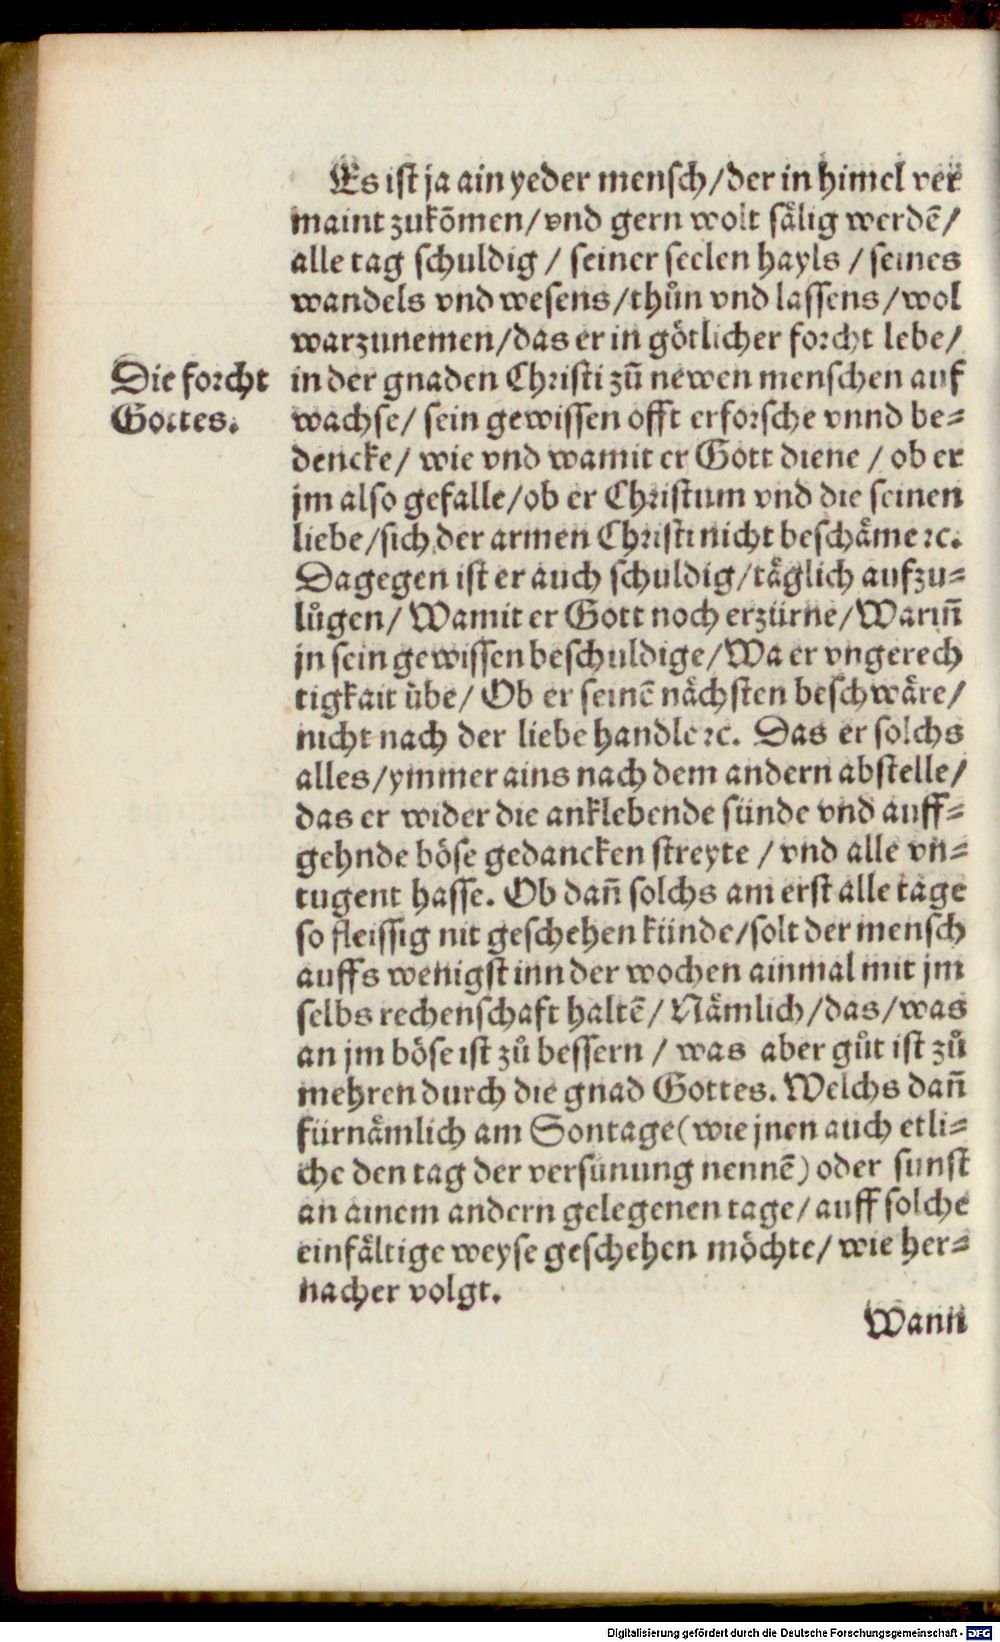 Es ist ja ain yeder mensch/der in himel ver
maint zukõmen/vnd gern wolt sälig werdẽ/
alle tag schuldig / seiner seelen hayls / seines
wandels vnd wesens/thůn vnd lassens/wol
warzunemen/das er in götlicher forcht lebe/
Die forcht
Gottes.
in der gnaden Christi zů newen menschen auf
wachse/ sein gewissen offt erforsche vnnd be⸗
dencke/ wie vnd wamit er Gott diene / ob er
jm also gefalle/ob er Christum vnd die seinen
liebe/sich der armen Christi nicht beschäme ꝛc.
Dagegen ist er auch schuldig/täglich aufzu⸗
lůgen/ Wamit er Gott noch erzürne/Warin̄
jn sein gewissen beschuldige/Wa er vngerech
tigkait übe/ Ob er seinẽ nächsten beschwäre/
nicht nach der liebe handle ꝛc. Das er solchs
alles/ymmer ains nach dem andern abstelle/
das er wider die anklebende sünde vnd auff⸗
gehnde böse gedancken streyte / vnd alle vn⸗
tugent hasse. Ob dañ solchs am erst alle tage
so fleissig nit geschehen künde/solt der mensch
auffs wenigst inn der wochen ainmal mit jm
selbs rechenschaft haltẽ/ Nämlich/das/was
an jm böse ist zů bessern / was aber gůt ist zů
mehren durch die gnad Gottes. Welchs dañ
fürnämlich am Sontage(wie jnen auch etli⸗
che den tag der versünung nennẽ) oder sunst
an ainem andern gelegenen tage/auff solche
einfältige weyse geschehen möchte/ wie her⸗
nacher volgt.
Wann
Digitalisierung gefördert durch die Deutsche Forschungsgemeinschaft - DFG